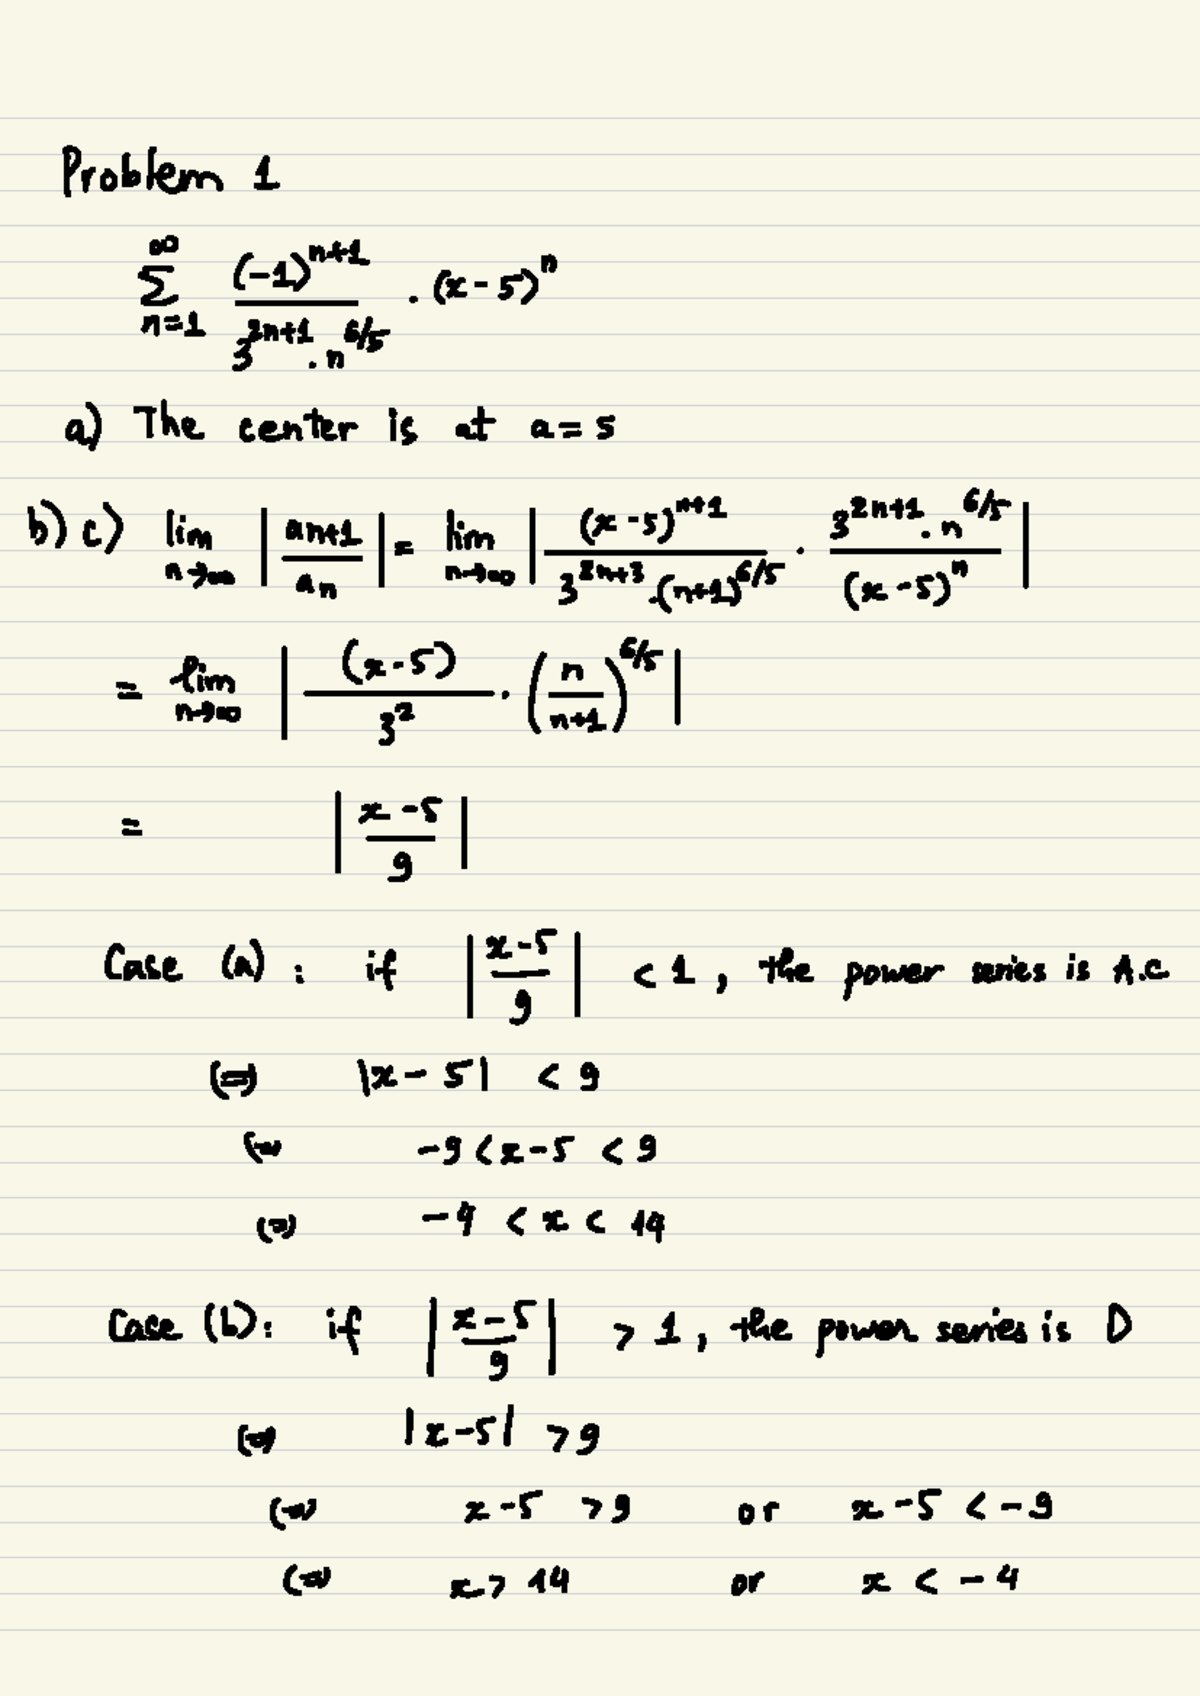 Problem 1
∞
∑ (-1)^{n+1} / (3^{2n+1} . n^{6/5}) . (x - 5)^n
n=1
a) The center is at a = 5
b) c) lim_{n→∞} | a_{n+1} / a_n | = lim_{n→∞} | (x - 5)^{n+1} / (3^{2n+3} . (n+1)^{6/5}) . (3^{2n+1} . n^{6/5}) / (x - 5)^n |
= lim_{n→∞} | (x - 5) / 3^2 . (n / (n+1))^{6/5} |
= | (x - 5) / 9 |
Case (a) : if | (x - 5) / 9 | < 1 , the power series is A.C
(=) |x - 5| < 9
(=) -9 < x - 5 < 9
(=) -4 < x < 14
Case (b) : if | (x - 5) / 9 | > 1 , the power series is D
(=) |x - 5| > 9
(=) x - 5 > 9 or x - 5 < -9
(=) x > 14 or x < -4